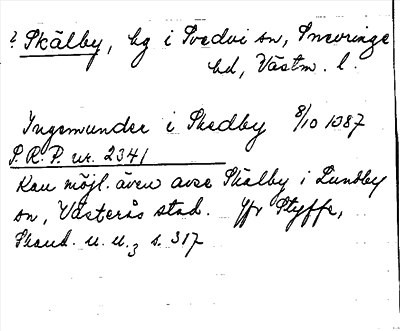 ? Skälby, by i Svedvi sn, Snevringe
hd, Västm. l.
Ingemunder i Skedby 8/10 1387
S.R.P. nr. 2341
Kan möjl. även avse Skälby i Lundby
sn, Västerås stad. Jfr Styffe,
Skand. u. u.3 s. 317